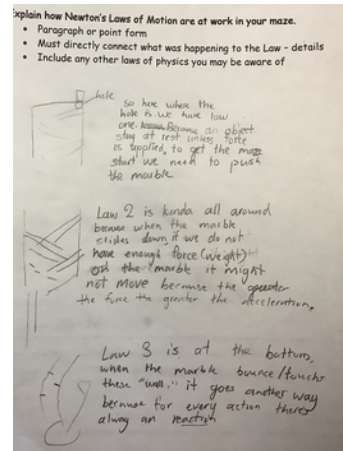 Explain how Newton's Laws of Motion are at work in your maze.
• Paragraph or point form
• Must directly connect what was happening to the Law – details
• Include any other laws of physics you may be aware of
hole
so here where the
hole is we have law
one. Because an object
stay at rest unless force
is applied, to get the maze
start we need to push
the marble
Law 2 is kinda all around
because when the marble
slides down if we do not
have enough force (weight)
on the marble it might
not move because the greater
the force the greater the acceleration.
Law 3 is at the bottom,
when the marble bounce/touchs
these "wall," it goes another way
because for every action theres
alway an reaction